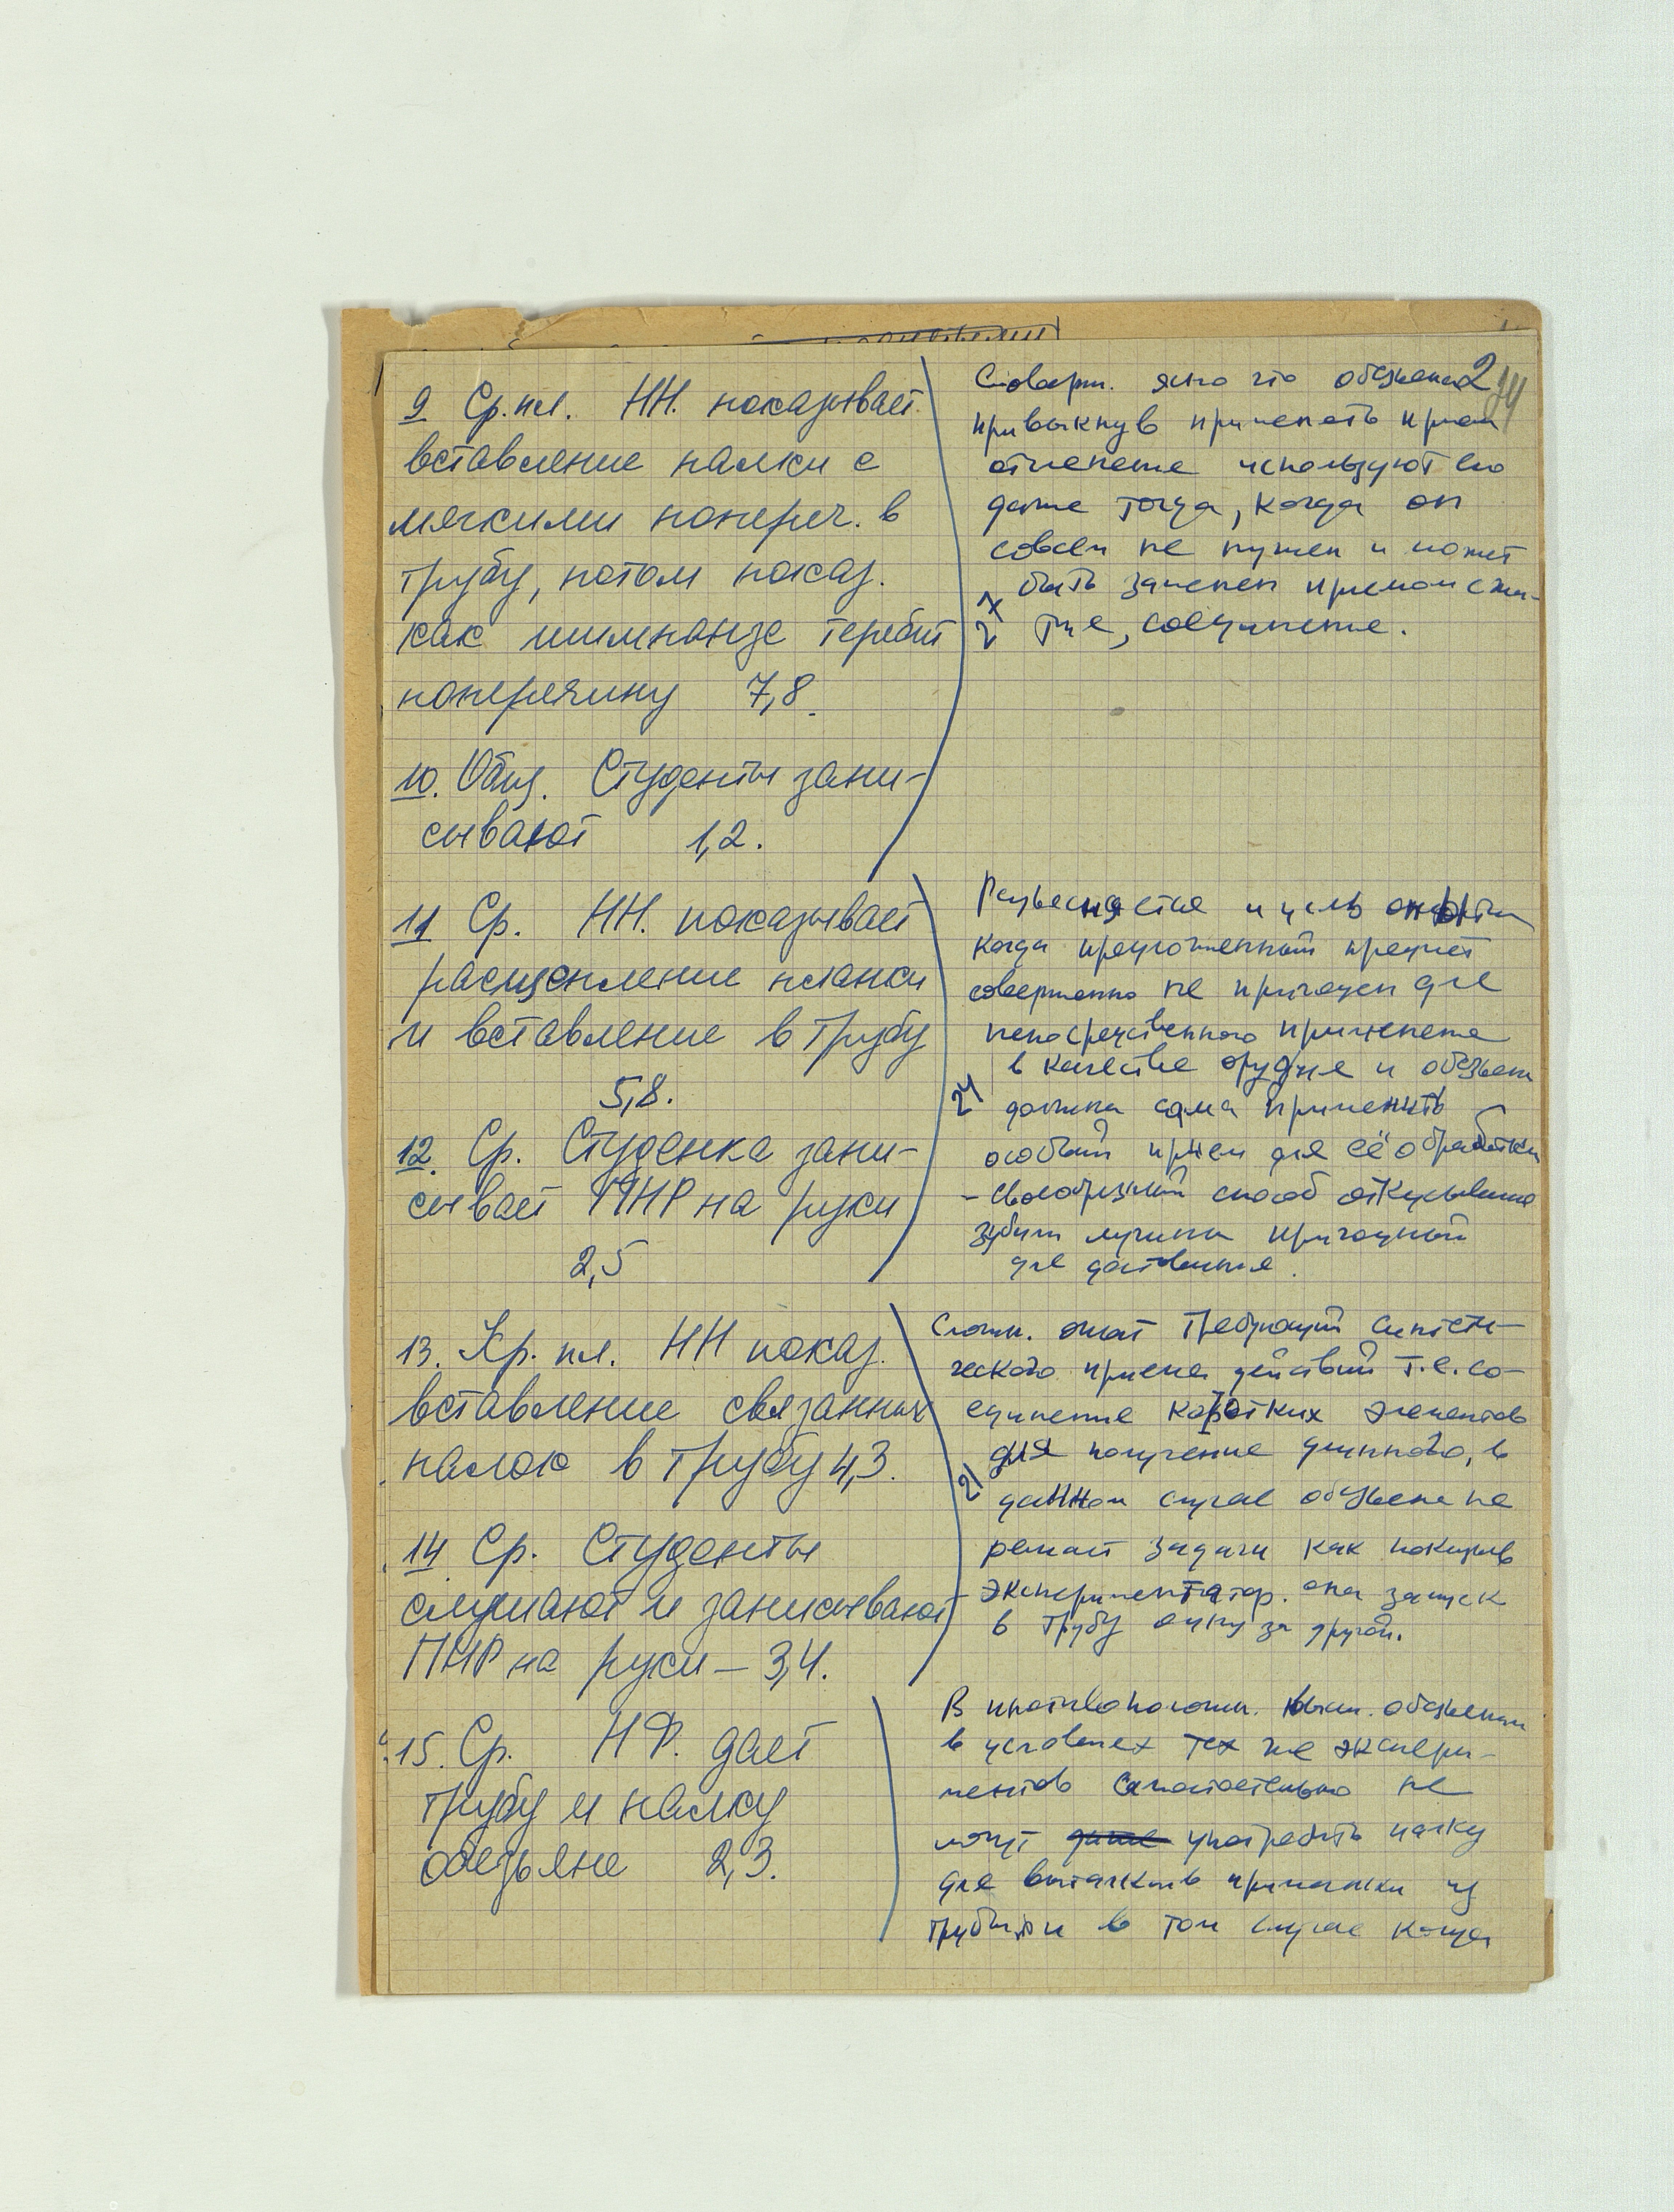 9 Ср. пл. НН. показывает
вставление палки с
мягкими попереч. в
трубу, потом показ.
как шимпанзе теребит
поперечину 7,8.
10. Общ. Студенты запи-
сывают 1,2.
11 Ср. НН. показывает
расщепление планки
и вставление в трубу
5,8.
12. Ср. Студенка запи-
сывает ПНР на руки
2,5
13. Кр. пл. НН показ.
вставление связанных
палок в трубу 4,3.
14 Ср. Студенты
слушают и записывают
ПНР на руки – 3,4.
15. Ср. НФ. дает
трубу и палку
обезьяне 2,3.
2
Соверш. ясно что обезьяна
привыкнув применять прием
отчленение используют его
даже тогда, когда он
совсем не нужен и может
быть заменен приемом сжа-
тие, соединение.
и цель
когда предложенный предмет
совершенно не пригоден для
непосредственного применение
в качестве орудия и обезьяна
24 должна сама применить
особый прием для её обработки
– своеобразный способ откусывание
зубами лучины пригодный
для доставание.
Сложн. опыт требующий синтети-
ческого приема действий т.е. со-
единение коротких элементов
21 для получение длинного, в
данном случае обезьяна не
решает задачи как показыв
экспериментатор. она запуск
в трубу одну за другой.
В противоположн. высш. обезьянам
в условиях тех же экспери-
ментов самостоятельно не
могут даже употребить палку
для вытолкнов приманки из
трубы и в том случае когда